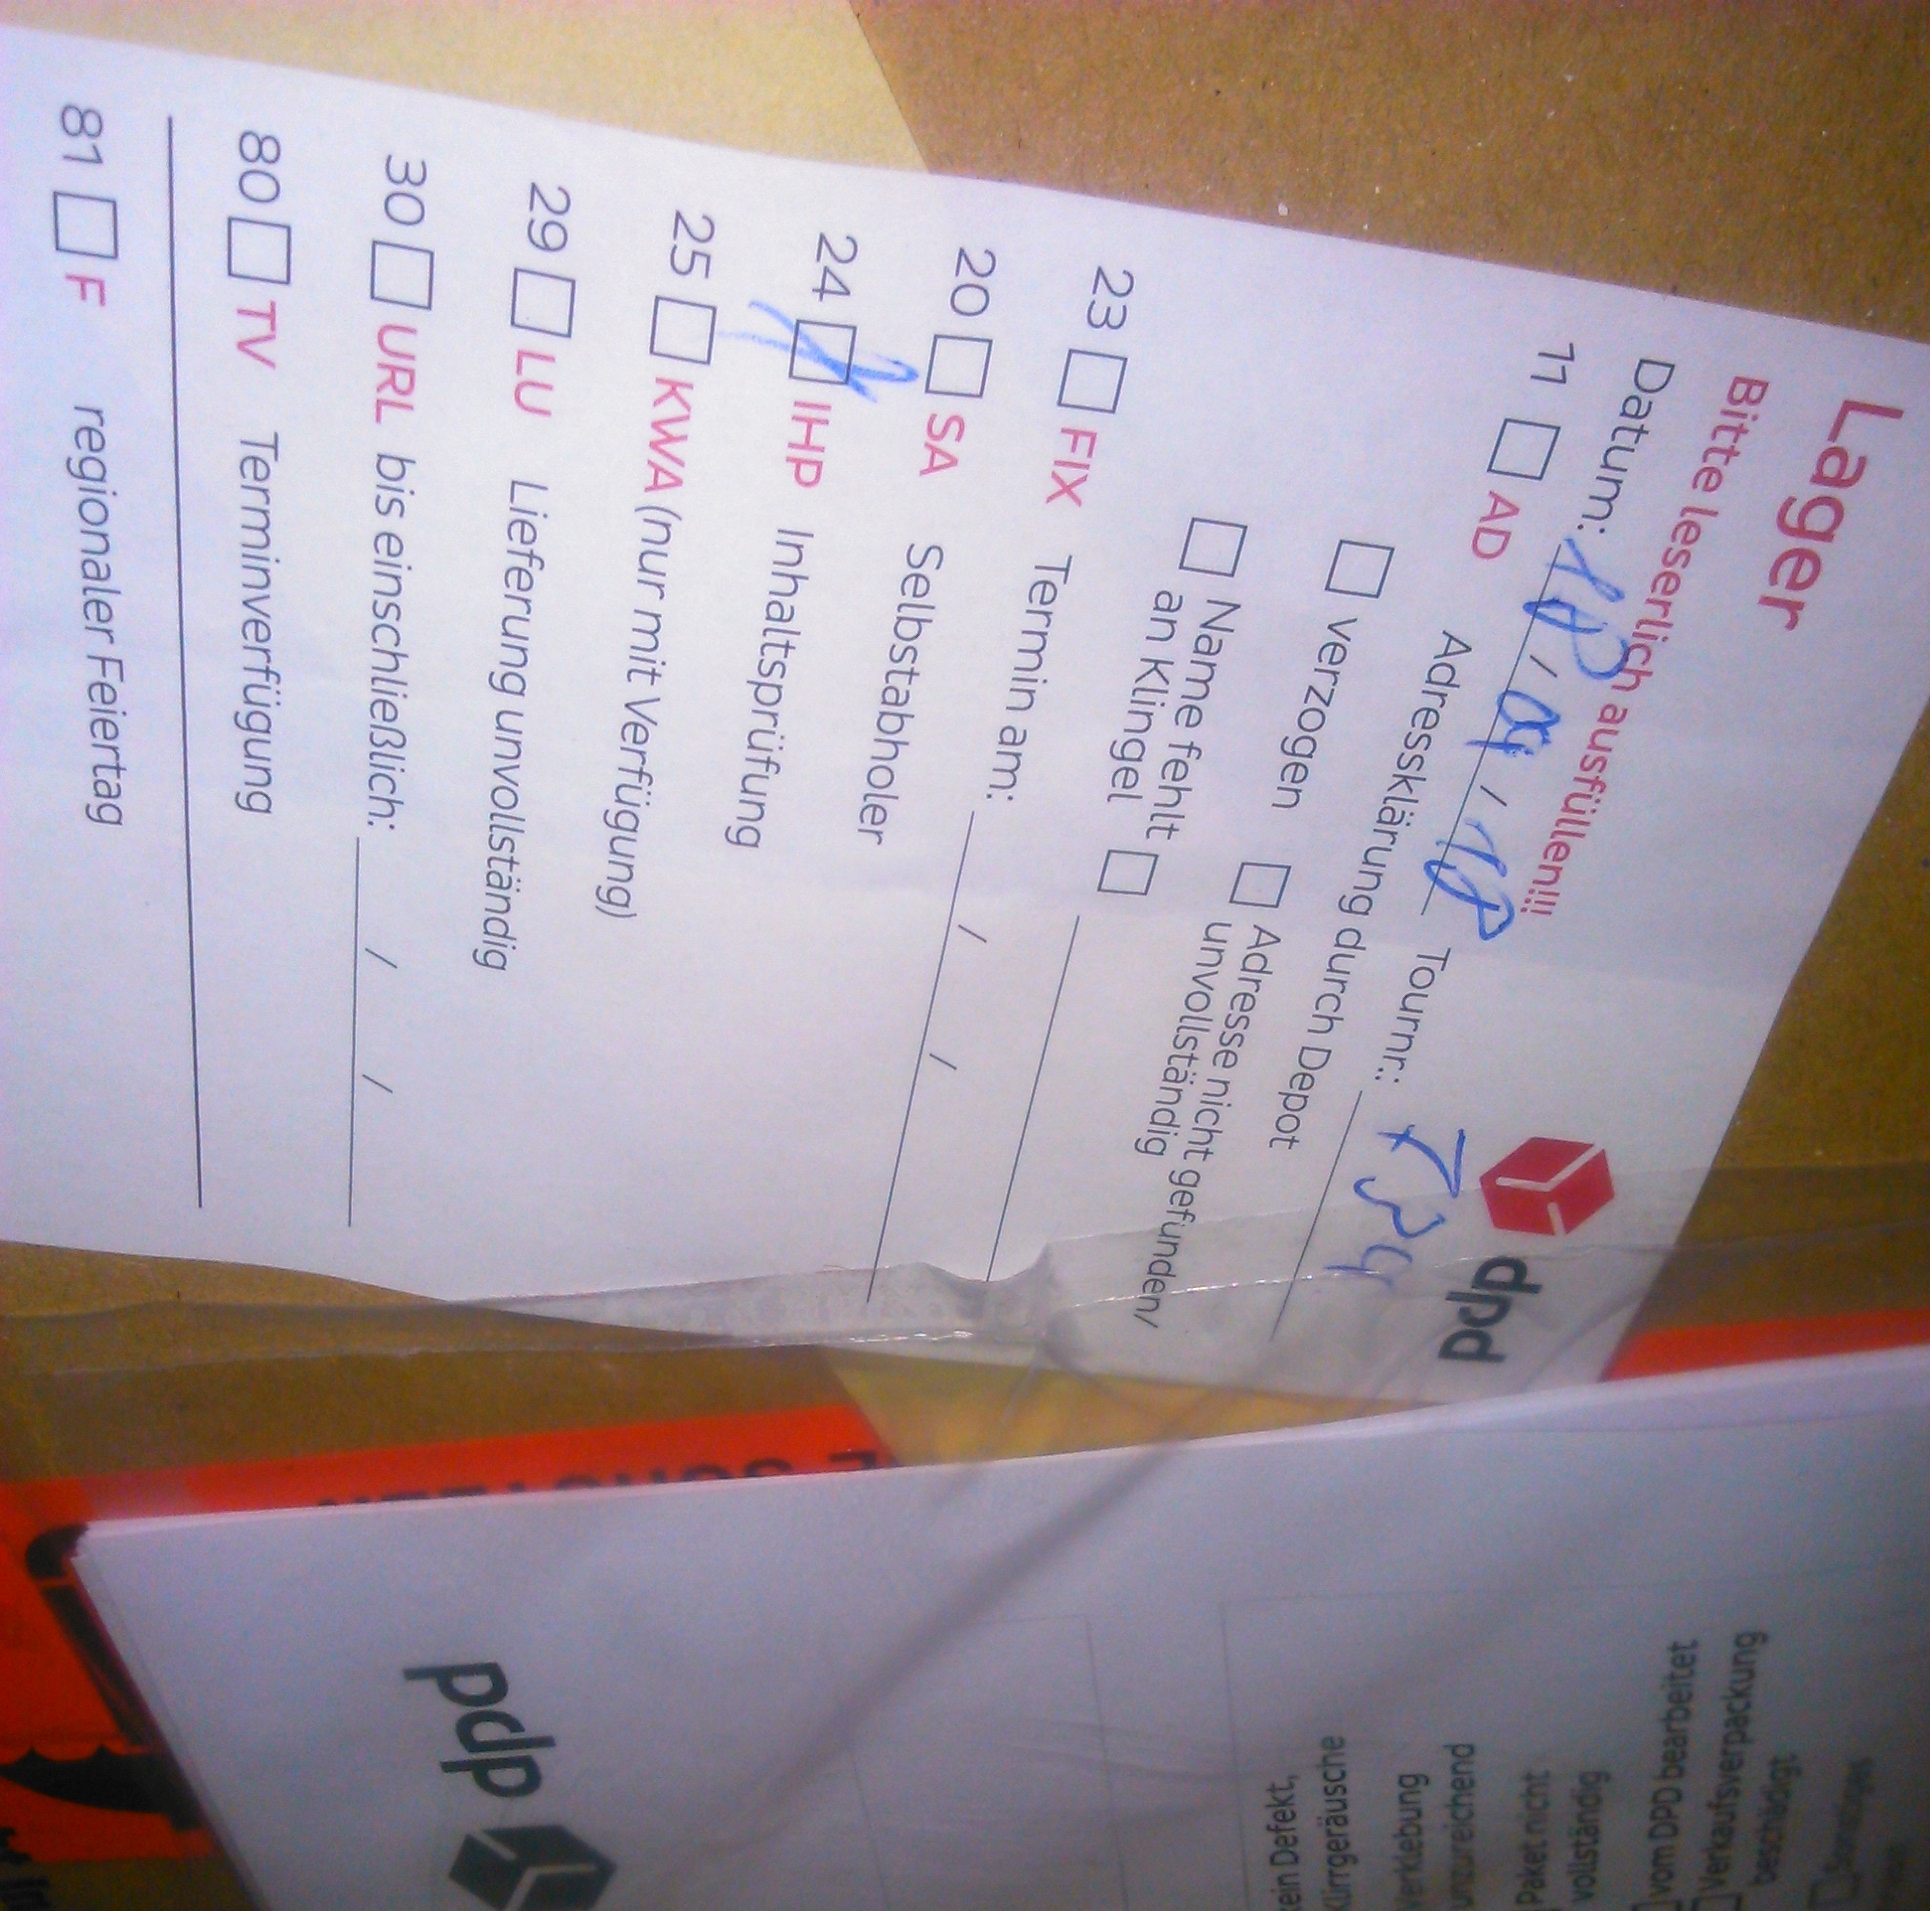 Lager
dpd
Bitte leserlich ausfüllen!!!
Datum: 18 / 09 / 18 Tournr.:
11 AD Adressklärung durch Depot
verzogen
Adresse nicht gefunden/
unvollständig
Name fehlt
an Klingel
23 FIX Termin am: / /
20 SA Selbstabholer
24 IHP Inhaltsprüfung
25 KWA (nur mit Verfügung)
29 LU Lieferung unvollständig
30 URL bis einschließlich: / /
80 TV Terminverfügung
81 F regionaler Feiertag
dpd
kein Defekt,
Klirrgeräusche
Verklebung
unzureichend
Paket nicht
vollständig
vom DPD bearbeitet
Verkaufsverpackung
beschädigt
Sonstiges